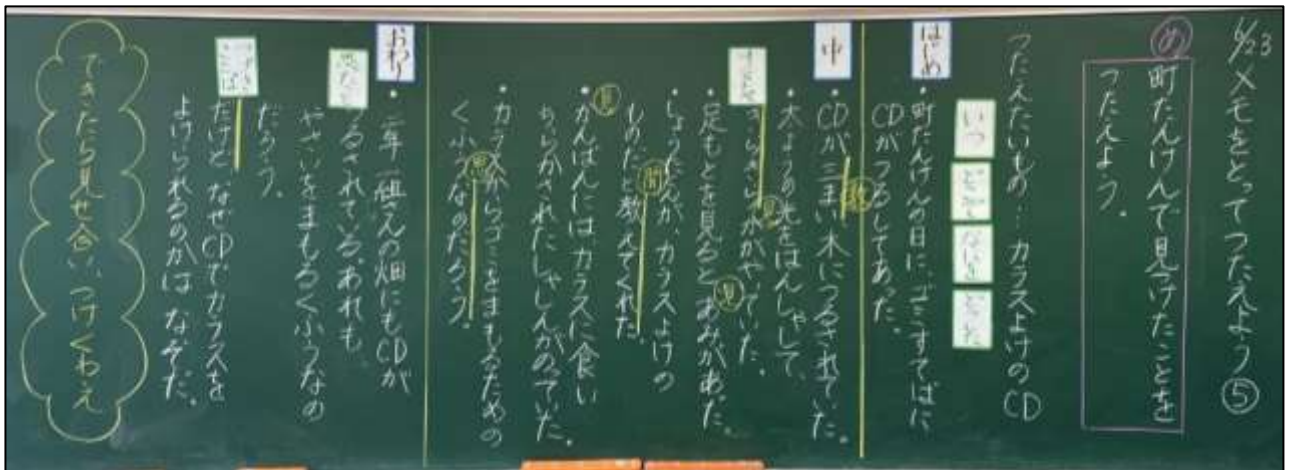 6/23 メモをとってつたえよう⑤
め
町たんけんで見つけたことを
つたえよう。
つたえたいもの…カラスよけのCD
いつ
どこで
なにを
はじめ
・町たんけんの日に、ゴミすてばに
CDがつるしてあった。
中
・CDが三まい木につるされていた。
太ようの光をはんしゃして、
きらきら水かがやいていた。
見
・足もとを見るとあみがあった。
見
・しょうたくんが、カラスよけの
ものだと教えてくれた。
聞
・かんばんには、カラスに食い
ちらかされたしゃしんがのっていた。
見
・カラスからゴミをまもるための
くふうなのだろう。
思
おわり
・二年一組の畑にもCDが
つるされている。あれも
やさいをまもるくふうなの
だろう。
だけど なぜCDでカラスを
よけられるのかは なぞだ。
できたら見せ合い、つけくわえ